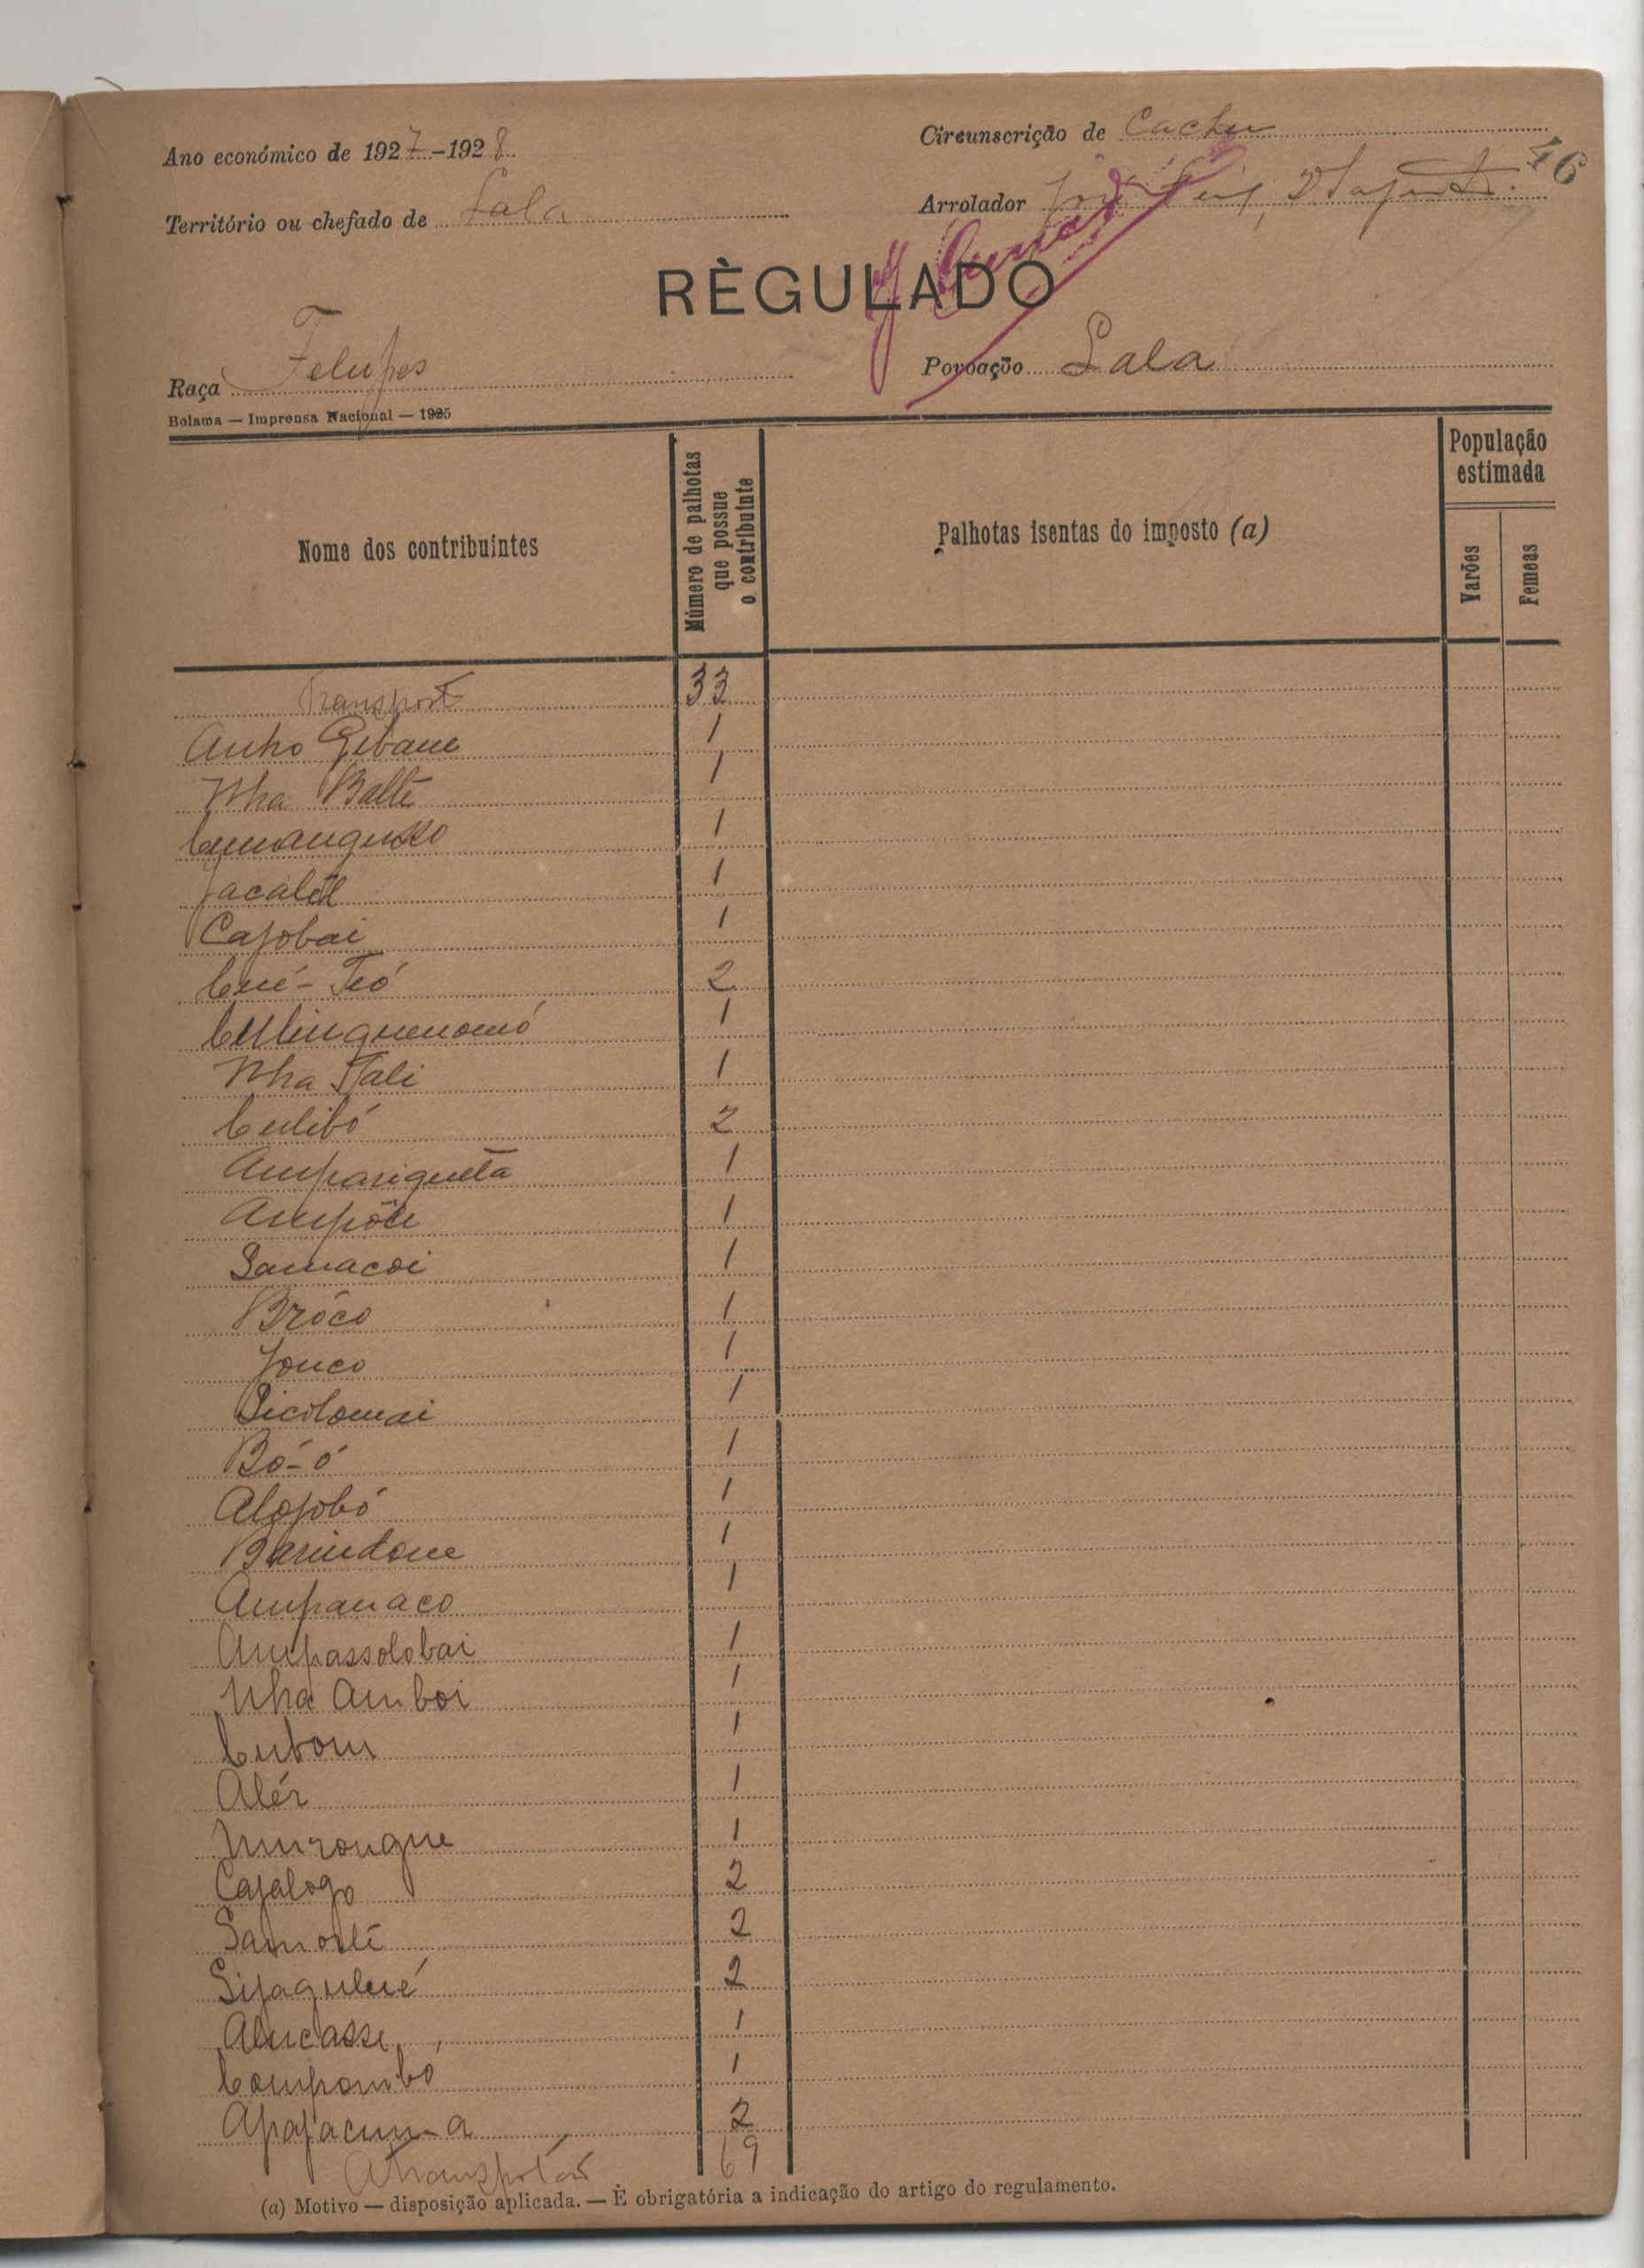 Ano económico de 1927-1928
Circunscrição de Cacheu
46
Território ou chefado de Lala
Arrolador José
RÈGULADO
Raça Felupes
Povoação Lala
Bolama — Imprensa Nacional — 1925
Nome dos contribuintes
Número de palhotas que possue o contribuinte
Palhotas isentas do imposto (a)
População estimada
Varões
Femeas
Transport 33
Anho Gebane 1
Nha Balté 1
1
Jacalét 1
Cajobai 1
Cué-Teó 2
1
Nha Tali 1
Culibó 2
Ampanigueta 1
Ampôte 1
Samacoi 1
Bróco 1
Jouco 1
Sicolomai 1
Bó-ó 1
Alojobó 1
Barindone 1
Ampanaco 1
Ampassolobai 1
Nha Amboi 1
Cubom 1
Alér 1
Nurongue 1
Cajalogo 2
Samorté 2
Sijagulué 2
Alucasse 1
Compombó 1
Apajacuma 2
A transportar 69
(a) Motivo — disposição aplicada. — È obrigatória a indicação do artigo do regulamento.